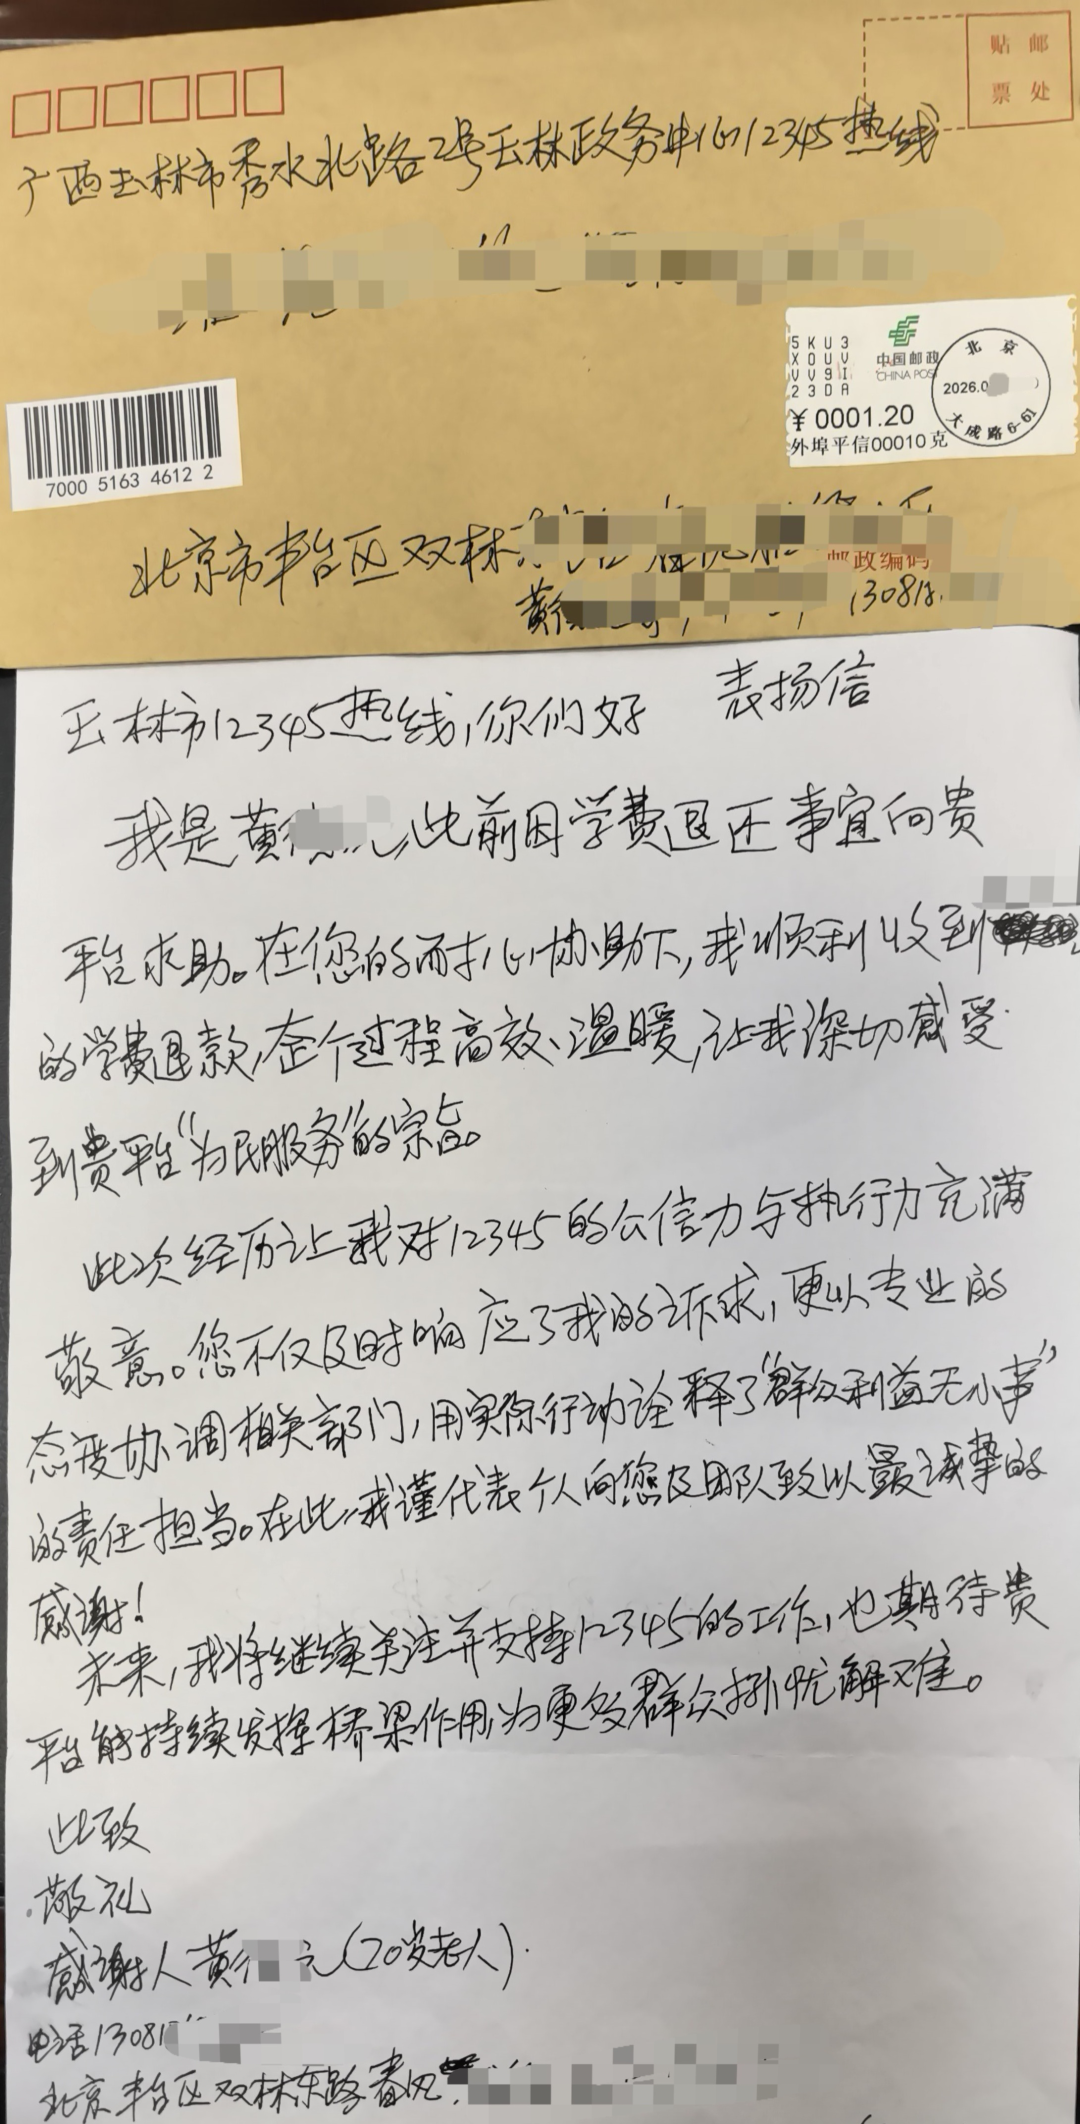 贴 邮
票 处
广西玉林市秀水北路2号玉林政务中心12345热线
5KU3
XOUV
VV9I
23DA
中国邮政
CHINA POST
¥0001.20
外埠平信00010克
北京
2026.0
大成路6-61
7000 5163 4612 2
北京市丰台区双林
邮政编码
黄
13081
表扬信
玉林市12345热线,你们好
我是黄 ,此前因学费退还事宜向贵
平台求助。在您的耐心协助下,我顺利收到
的学费退款,整个过程高效、温暖,让我深切感受
到贵平台“为民服务”的宗旨。
此次经历让我对12345的公信力与执行力充满
敬意。您不仅及时响应了我的诉求,更以专业的
态度协调相关部门,用实际行动诠释了“群众利益无小事”
的责任担当。在此,我谨代表个人向您及团队致以最诚挚的
感谢!
未来,我将继续关注并支持12345的工作,也期待贵
平台能持续发挥桥梁作用,为更多群众排忧解难。
此致
敬礼
感谢人黄 元(70岁老人).
电话13081
北京丰台区双林东路春风